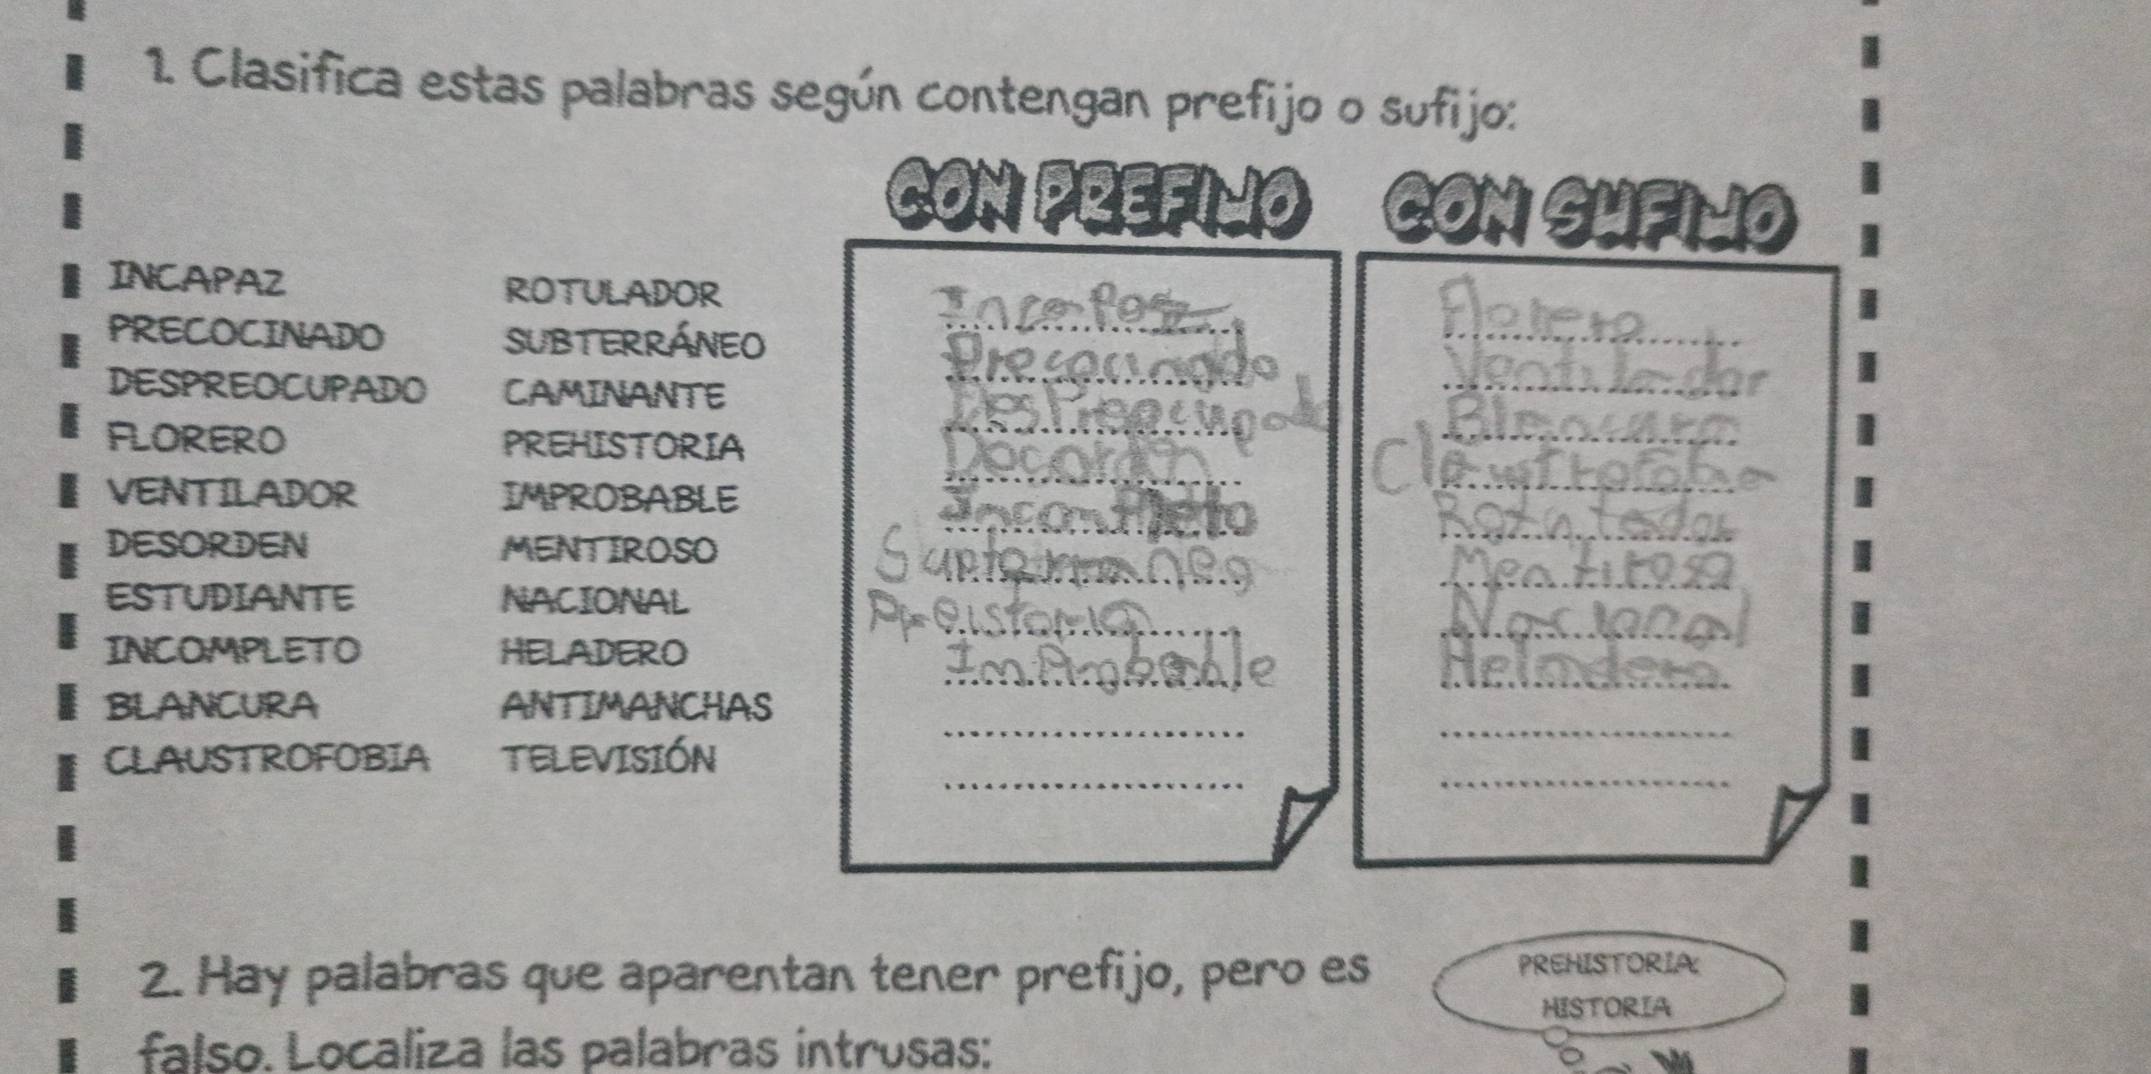 1. Clasifica estas palabras según contengan prefijo o sufijo:
CON PREFIJO
CON SUFIJO
INCAPAZ
PRECOCINADO
DESPREOCUPADO
FLORERO
VENTILADOR
DESORDEN
ESTUDIANTE
INCOMPLETO
BLANCURA
CLAUSTROFOBIA
ROTULADOR
SUBTERRÁNEO
CAMINANTE
PREHISTORIA
IMPROBABLE
MENTIROSO
NACIONAL
HELADERO
ANTIMANCHAS
TELEVISIÓN
Incapaz
Precocinado
Despreocupado
Incompleto
Preistoria
Improbable
Florero
Ventilador
Blancura
Claustrofobia
Mentiroso
Nacional
Heladero
2. Hay palabras que aparentan tener prefijo, pero es
falso. Localiza las palabras intrusas:
PREHISTORIA:
HISTORIA